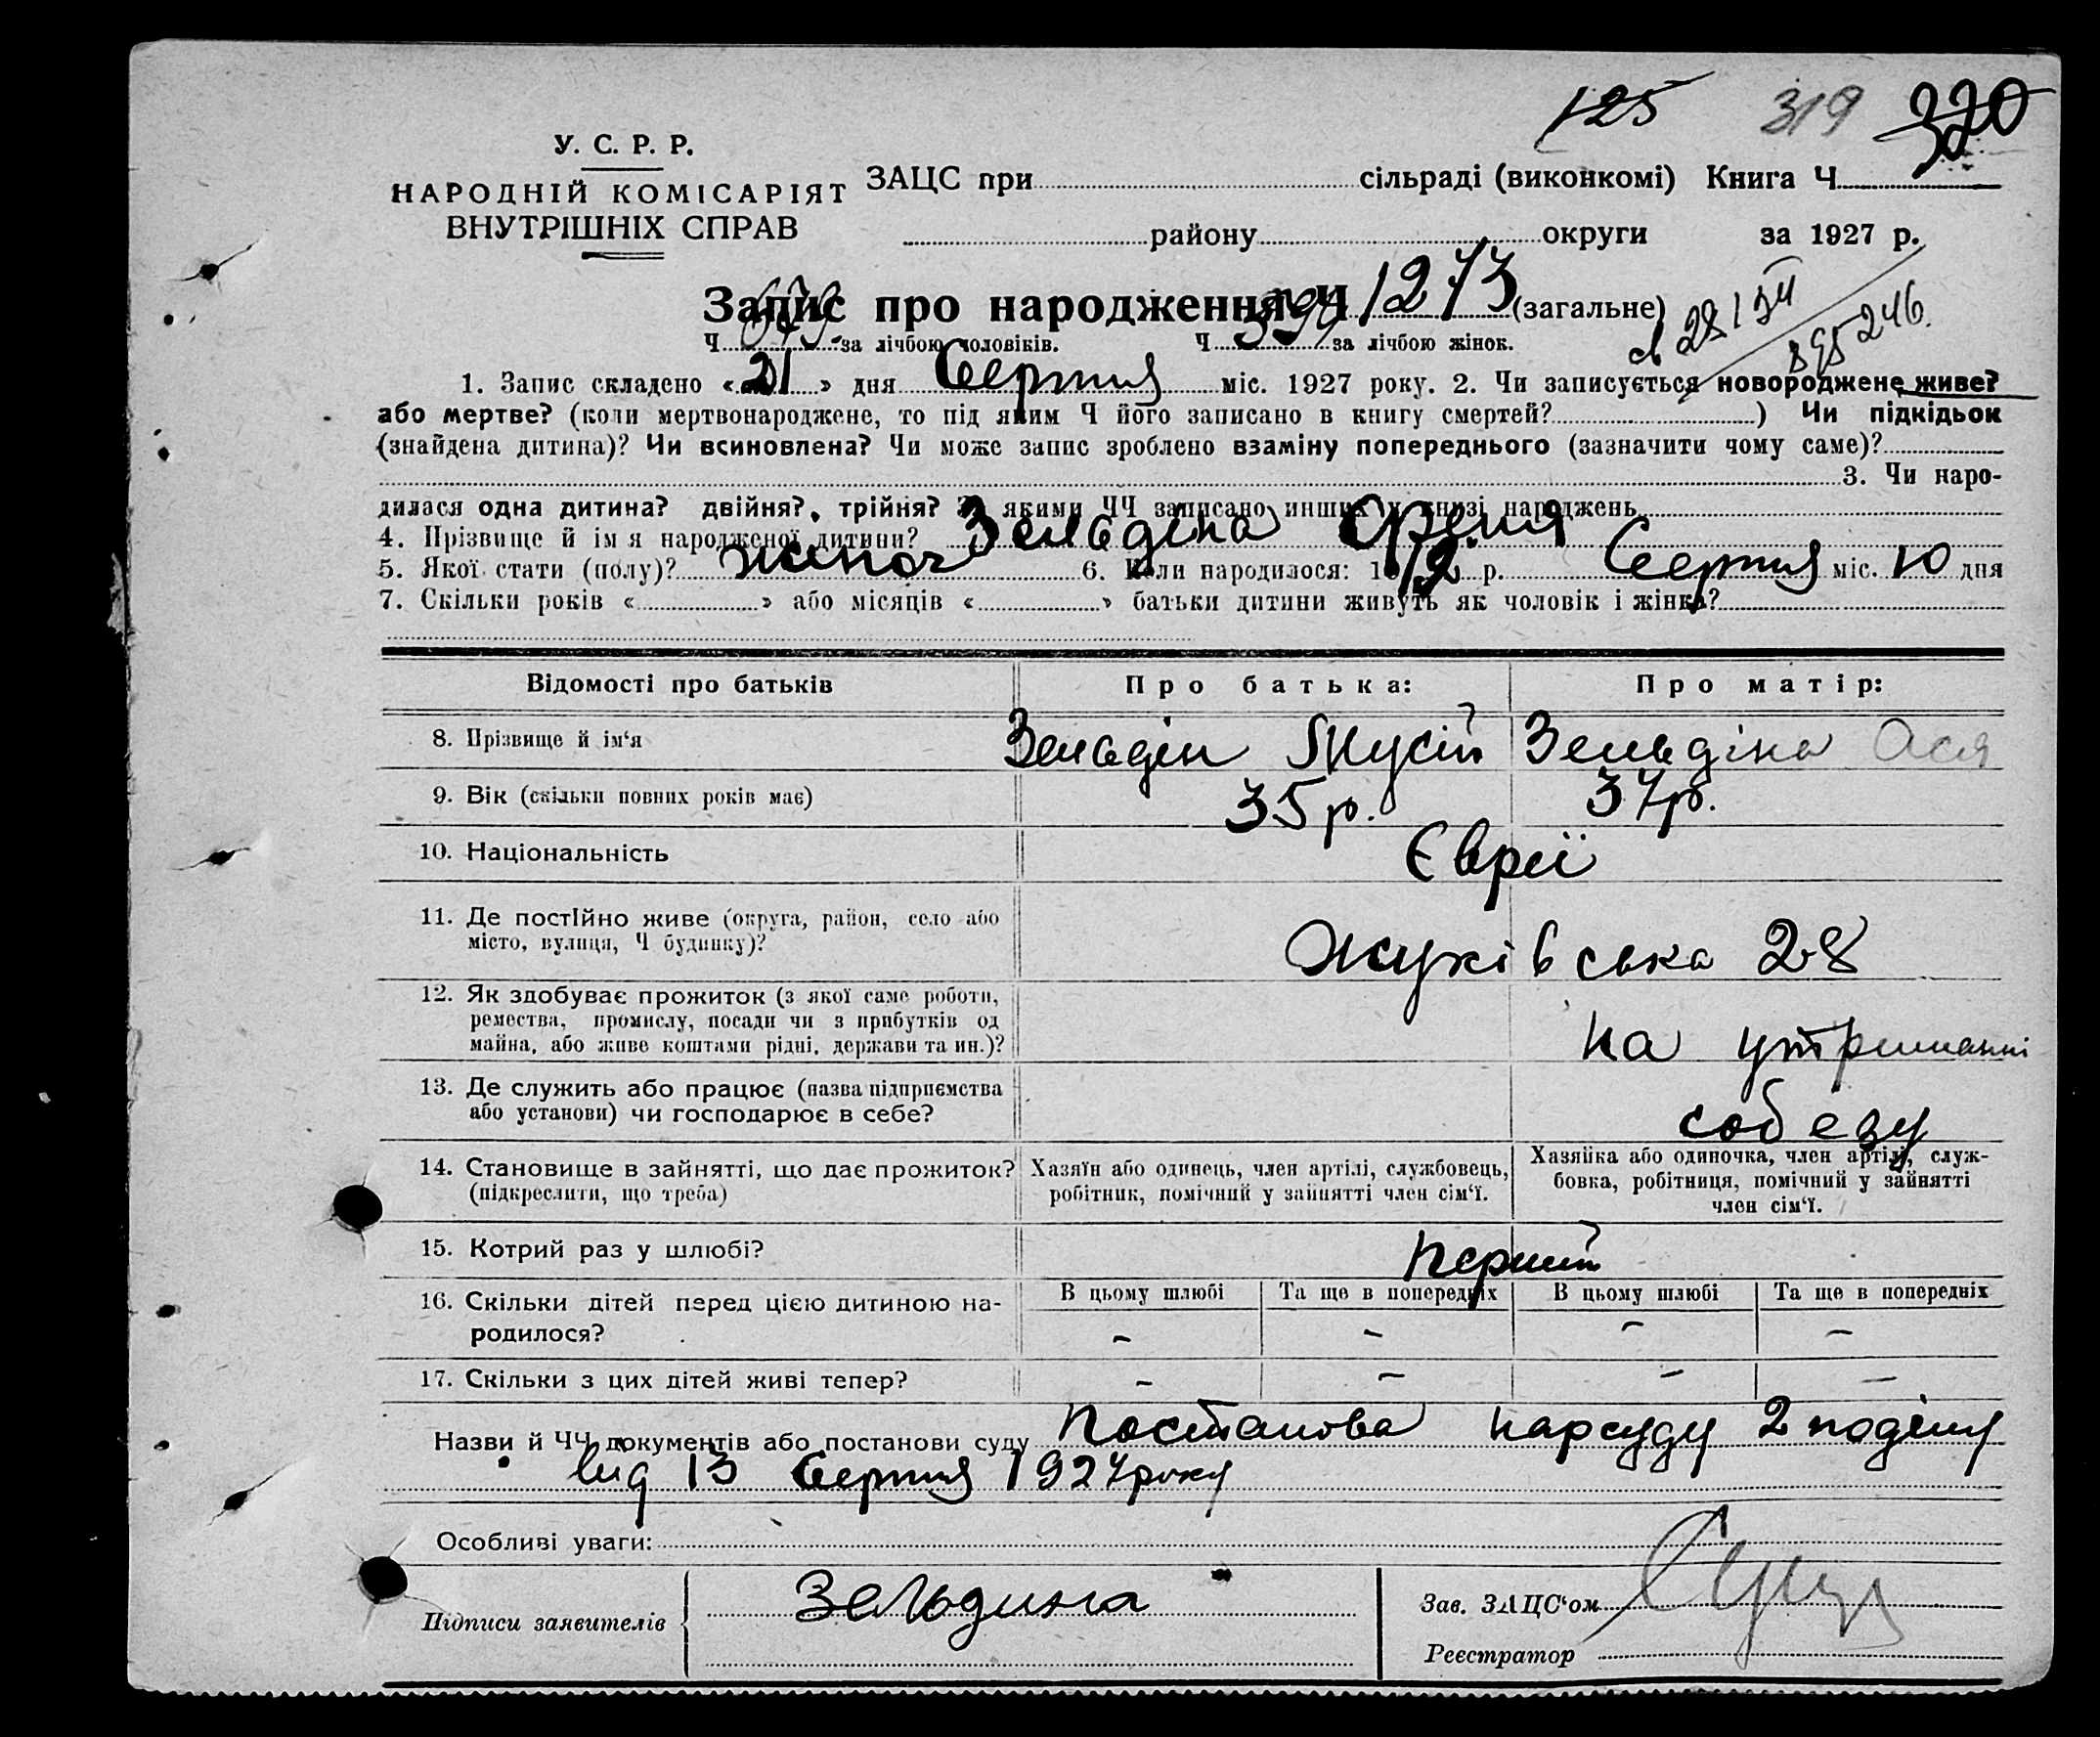 125 319 320
У. С. Р. Р.
НАРОДНІЙ КОМІСАРІЯТ
ВНУТРІШНІХ СПРАВ
ЗАЦС при сільраді (виконкомі) Книга Ч
району округи за 1927 р.
Запис про народження Ч 1273 (загальне)
Ч за лічбою чоловіків. Ч за лічбою жінок.
1. Запис складено «21» дня Серпня міс. 1927 року. 2. Чи записується новороджене живе?
або мертве? (коли мертвонароджене, то під яким Ч його записано в книгу смертей? ) Чи підкідьок
(знайдена дитина)? Чи всиновлена? Чи може запис зроблено взаміну попереднього (зазначити чому саме)?
3. Чи наро-
дилася одна дитина? двійня? трійня? З якими ЧЧ записано инших у книзі народжень
4. Прізвище й ім'я народженої дитини? Зельдіна
5. Якої стати (полу)? жіноч 6. Коли народилося: 1912 р. Серпня міс. 10 дня
7. Скільки років « » або місяців « » батьки дитини живуть як чоловік і жінка?
Відомості про батьків Про батька: Про матір:
8. Прізвище й ім'я Зельдін Мусій Зельдіна Ася
9. Вік (скільки повних років має) 35 р. 37 р.
10. Національність Євреї
11. Де постійно живе (округа, район, село або
місто, вулиця, Ч будинку)? Жуківська 28
12. Як здобуває прожиток (з якої саме роботи,
ремества, промислу, посади чи з прибутків од
майна, або живе коштами рідні, держави та ин.)? На утриманні
13. Де служить або працює (назва підприємства
або установи) чи господарює в себе? собезу
14. Становище в зайнятті, що дає прожиток?
(підкреслити, що треба)
Хазяїн або одинець, член артілі, службовець,
робітник, помічний у зайнятті член сім'ї.
Хазяйка або одиночка, член артілі, служ-
бовка, робітниця, помічний у зайнятті
член сім'ї.
15. Котрий раз у шлюбі? Перший
16. Скільки дітей перед цією дитиною на-
родилося?
В цьому шлюбі Та ще в попередніх В цьому шлюбі Та ще в попередніх
– – – –
17. Скільки з цих дітей живі тепер? – – – –
Назви й ЧЧ документів або постанови суду Постанова нарсуду 2 
від 13 Серпня 1927 року
Особливі уваги:
Підписи заявителів Зельдина
Зав. ЗАЦС'ом
Реєстратор